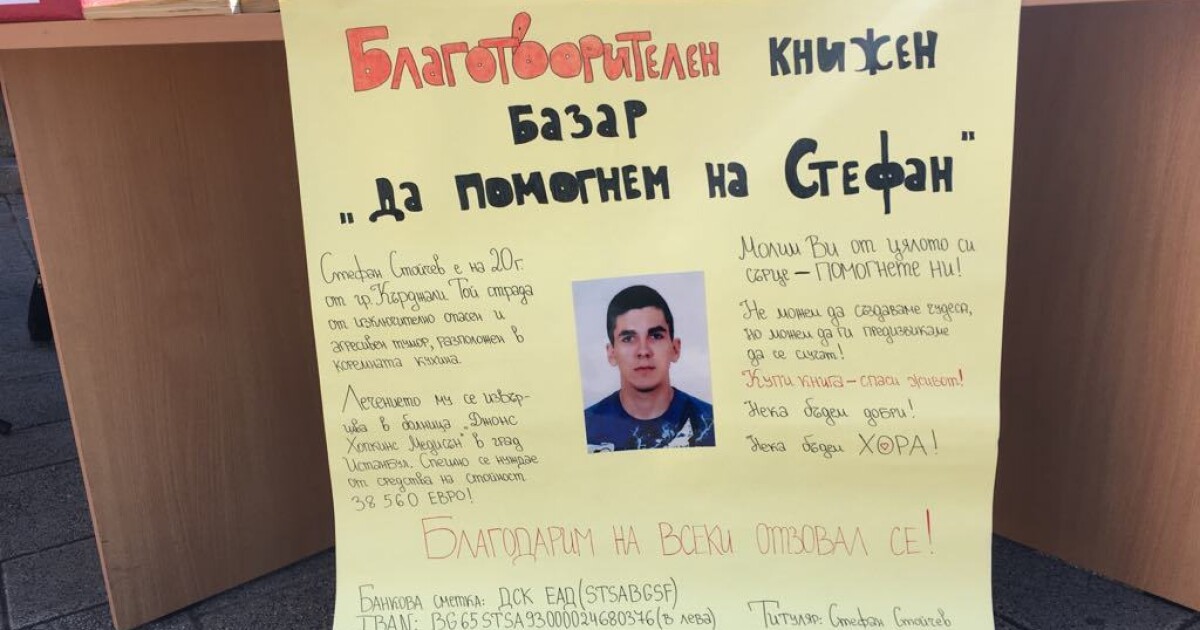 Благотворителен книжен
базар
„да помогнем на Стефан"
Стефан Стойчев е на 20г.
от гр. Кърджали. Той страда
от изключително опасен и
агресивен тумор, разположен в
коремната кухина.
Лечението му се извър-
шва в болница „Джонс
Хопкинс Медисън" в град
Истанбул. Спешно се нуждае
от средства на стойност
38 560 ЕВРО!
Молим Ви от цялото си
сърце – ПОМОГНЕТЕ НИ!
Не можем да създаваме чудеса,
но можем да ги предизвикаме
да се случат!
Купи книга – спаси живот!
Нека бъдем добри!
Нека бъдем ХОРА!
БЛАГОДАРИМ НА ВСЕКИ ОТЗОВАЛ СЕ!
БАНКОВА СМЕТКА: ДСК ЕАД (STSABGSF)
IBAN: BG65STSA93000024680376 (в лева)
Титуляр: Стефан Стойчев